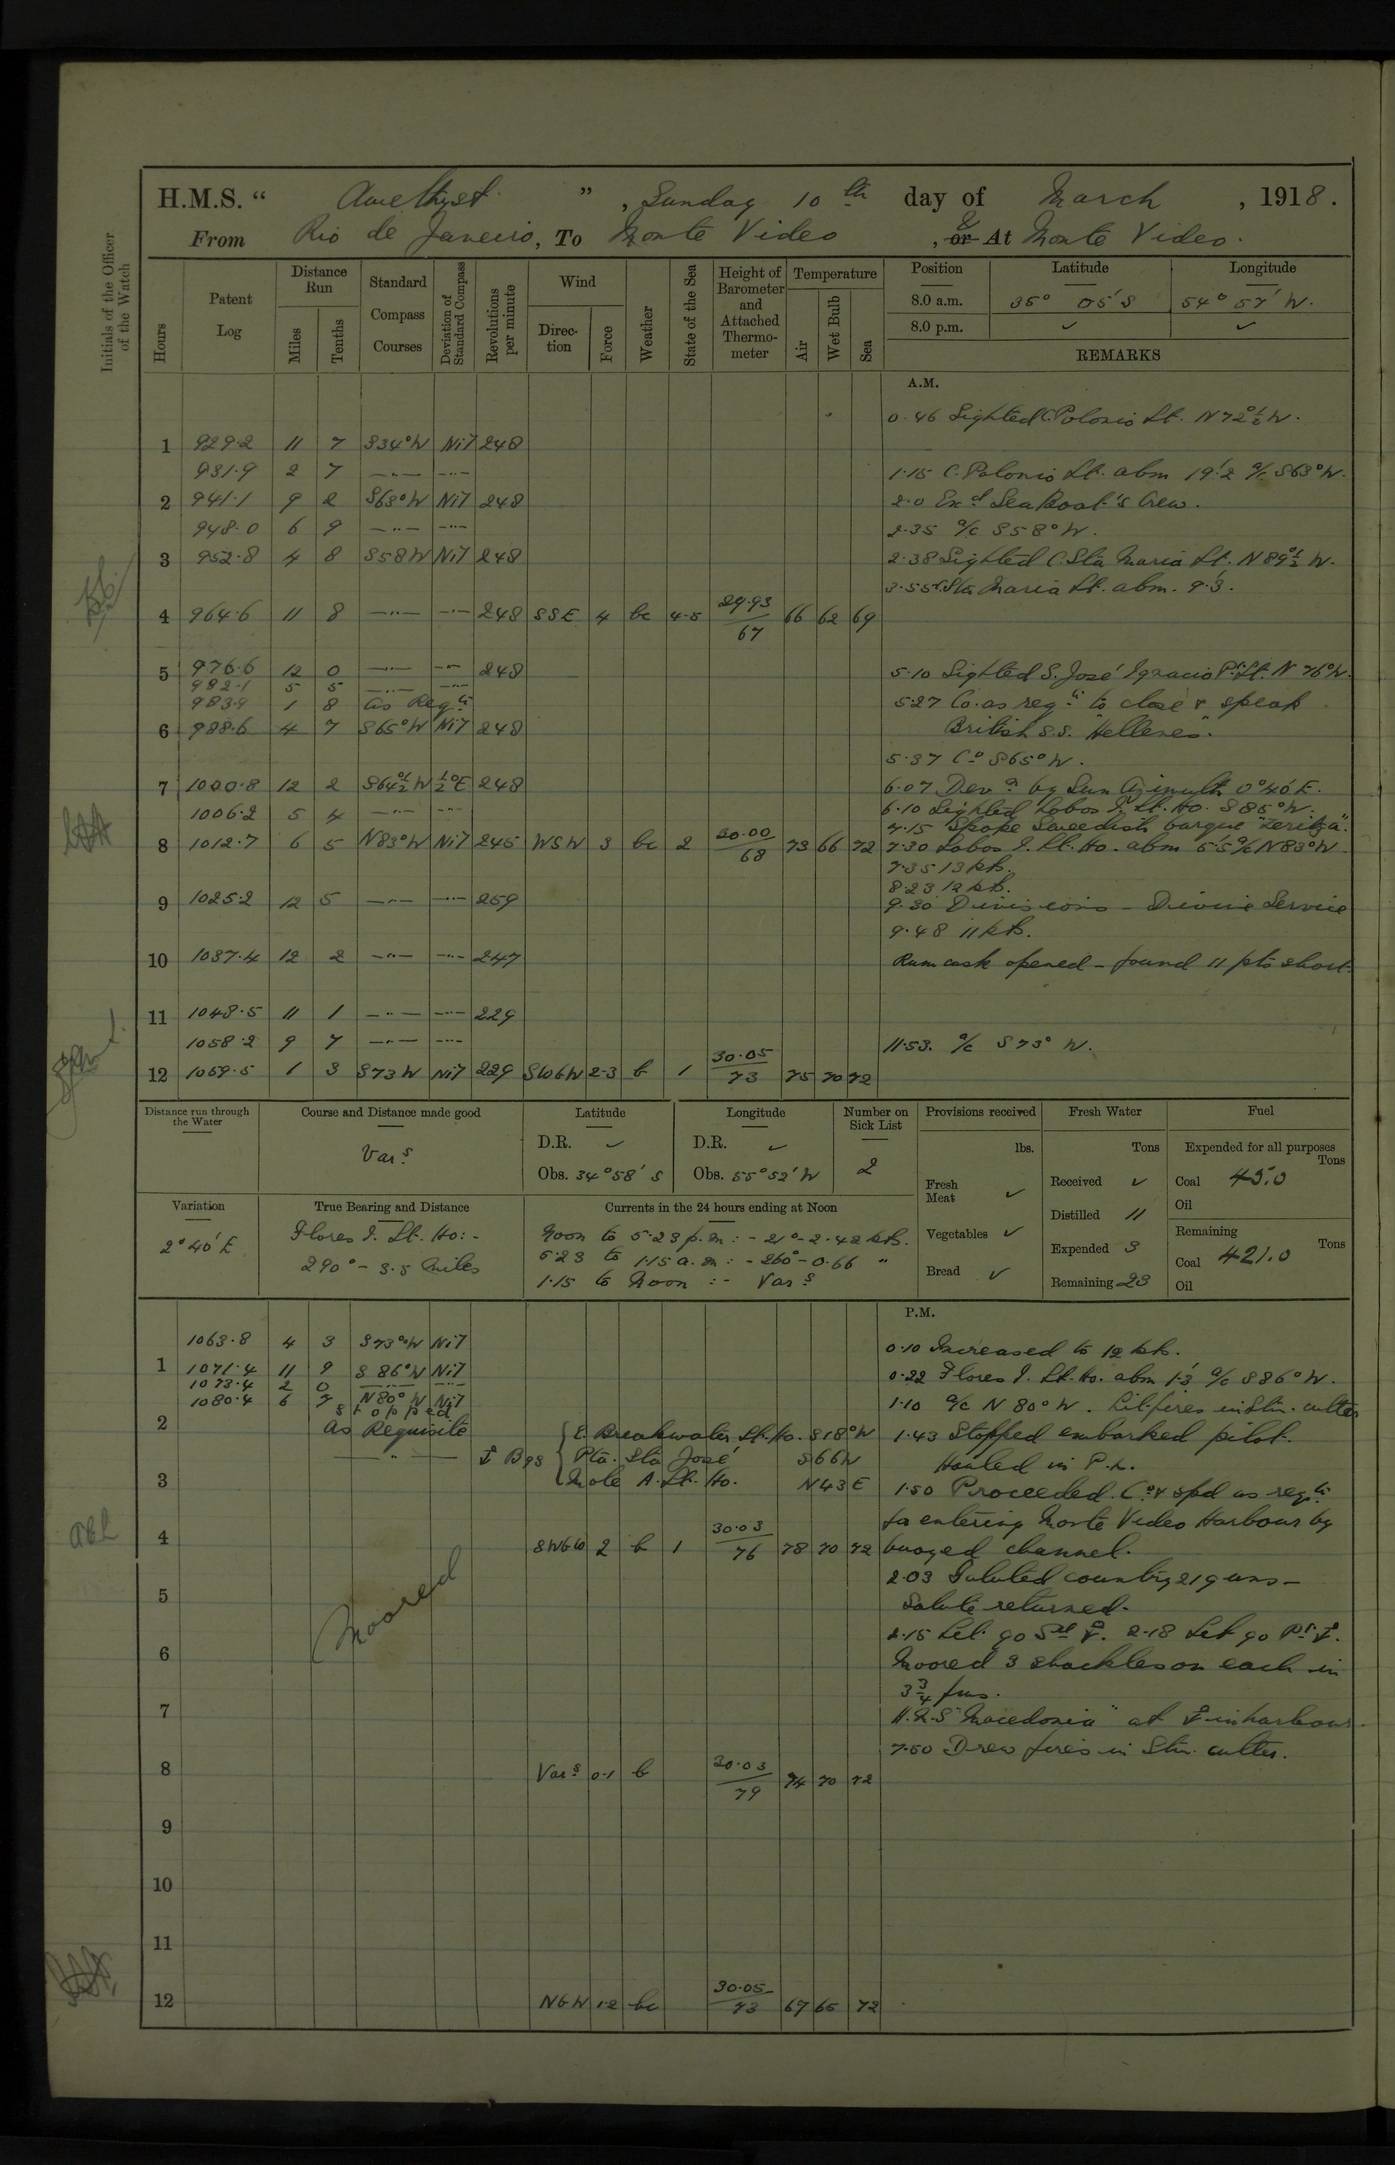 H.M.S. " Amethyst ", Sunday 10th day of March, 1918.
From Rio de Janeiro, To Monte Video, or & At Monte Video.
Initials of the Officer of the Watch
Hours
Patent Log
Distance Run
Miles
Tenths
Standard Compass Courses
Deviation of Standard Compass
Revolutions per minute
Wind
Direction
Force
Weather
State of the Sea
Height of Barometer and Attached Thermometer
Temperature
Air
Wet Bulb
Sea
Position Latitude Longitude
8.0 a.m. 35° 05' S 54° 57' W.
8.0 p.m. ✓ ✓
REMARKS
A.M.
0.46 Sighted C. Polonio Lt. N72½°W.
1 929.2 11 7 S34°W Nil 248
931.9 2 7 —..— —..— 1.15 C. Polonio Lt. abm 19'.2 a/c S63°W.
2 941.1 9 2 S63°W Nil 248 2.0 Exd Sea Boat's Crew.
948.0 6 9 —..— —..— 2.35 a/c S58°W.
3 952.8 4 8 S58W Nil 248 2.38 Sighted C. Sta Maria Lt. N89½°W.
3.55 C. Sta Maria Lt. abm. 9'.3.
4 964.6 11 8 —..— —..— 248 SSE 4 bc 4-5 29.93/67 66 62 69
5 976.6 12 0 —..— —..— 248 5.10 Sighted S. José Ignacio Pt. Lt. N76°W.
982.1 5 5 —..— —..—
983.9 1 8 as Reqte 5.27 Co. as reqte to close & speak
6 988.6 4 7 S65°W Nil 248 British S.S. "Hellenes".
5.37 Co S65°W.
7 1000.8 12 2 S64½°W ½°E 248 6.07 Devn by Sun Azimuth 0°40'E.
1006.2 5 4 —..— —..— 6.10 Sighted Lobos I. Lt. Ho. S85°W.
7.15 Spoke Swedish barque "Zeritza".
8 1012.7 6 5 N83°W Nil 245 WSW 3 bc 2 30.00/68 73 66 72 7.30 Lobos I. Lt. Ho. abm 5'.5 a/c N83°W
7.35 13 kts.
8.23 12 kts.
9 1025.2 12 5 —..— —..— 259 9.30 Divisions – Divine Service
9.48 11 kts.
10 1037.4 12 2 —..— —..— 247 Rum cask opened – found 11 pts short.
11 1048.5 11 1 —..— —..— 229
1058.2 9 7 —..— —..— 11.53. a/c S73° W.
12 1059.5 1 3 S73W Nil 229 SWbW 2-3 b 1 30.05/73 75 70 72
Distance run through the Water
Course and Distance made good
Vars
Latitude
D.R. ✓
Obs. 34°58' S
Longitude
D.R. ✓
Obs. 55°52' W
Number on Sick List
2
Provisions received
lbs.
Fresh Meat ✓
Vegetables ✓
Bread ✓
Fresh Water
Tons
Received ✓
Distilled 11
Expended 3
Remaining 23
Fuel
Expended for all purposes
Tons
Coal 45.0
Oil
Remaining
Tons
Coal 421.0
Oil
Variation
2°40' E
True Bearing and Distance
Flores I. Lt. Ho: -
290° – 3.5 miles
Currents in the 24 hours ending at Noon
Noon to 5.23 p.m: – 21° – 2.42 kts.
5.23 to 1.15 a.m: – 260° – 0.66 "
1.15 to Noon :- Vars
P.M.
1063.8 4 3 S73°W Nil 0.10 Increased to 12 kts.
1 1071.4 11 9 S 86°W Nil 0.22 Flores I. Lt. Ho. abm 1'.3 a/c S86°W.
1073.4 2 0 —..— —..—
1080.4 6 7 N80°W Nil 1.10 a/c N 80°W. Lit fires in Stm. cutter
Stopped
2 As Requisite { E. Breakwater Lt. Ho. S18°W 1.43 Stopped embarked pilot.
—..— ⚓ Bgs Pta. Sta José S66W Hauled in P.L.
3 Mole A. Lt. Ho. N43E 1.50 Proceeded. Co & spd as reqte
for entering Monte Video Harbour by
4 SWbW 2 b 1 30.03/76 78 70 72 buoyed channel.
2.03 Saluted country 21 guns –
5 Salute returned.
Moored
2.15 Let go Std ⚓. 2.18 Let go Pt ⚓.
6 Moored 3 shackles on each in
3¾ fms.
7 H.M.S "Macedonia" at ⚓ in harbour.
7.50 Drew fires in Stm. cutter.
8 Vars 0-1 b 30.03/79 74 70 72
9
10
11
12 NbW 1-2 bc 30.05/73 67 65 72